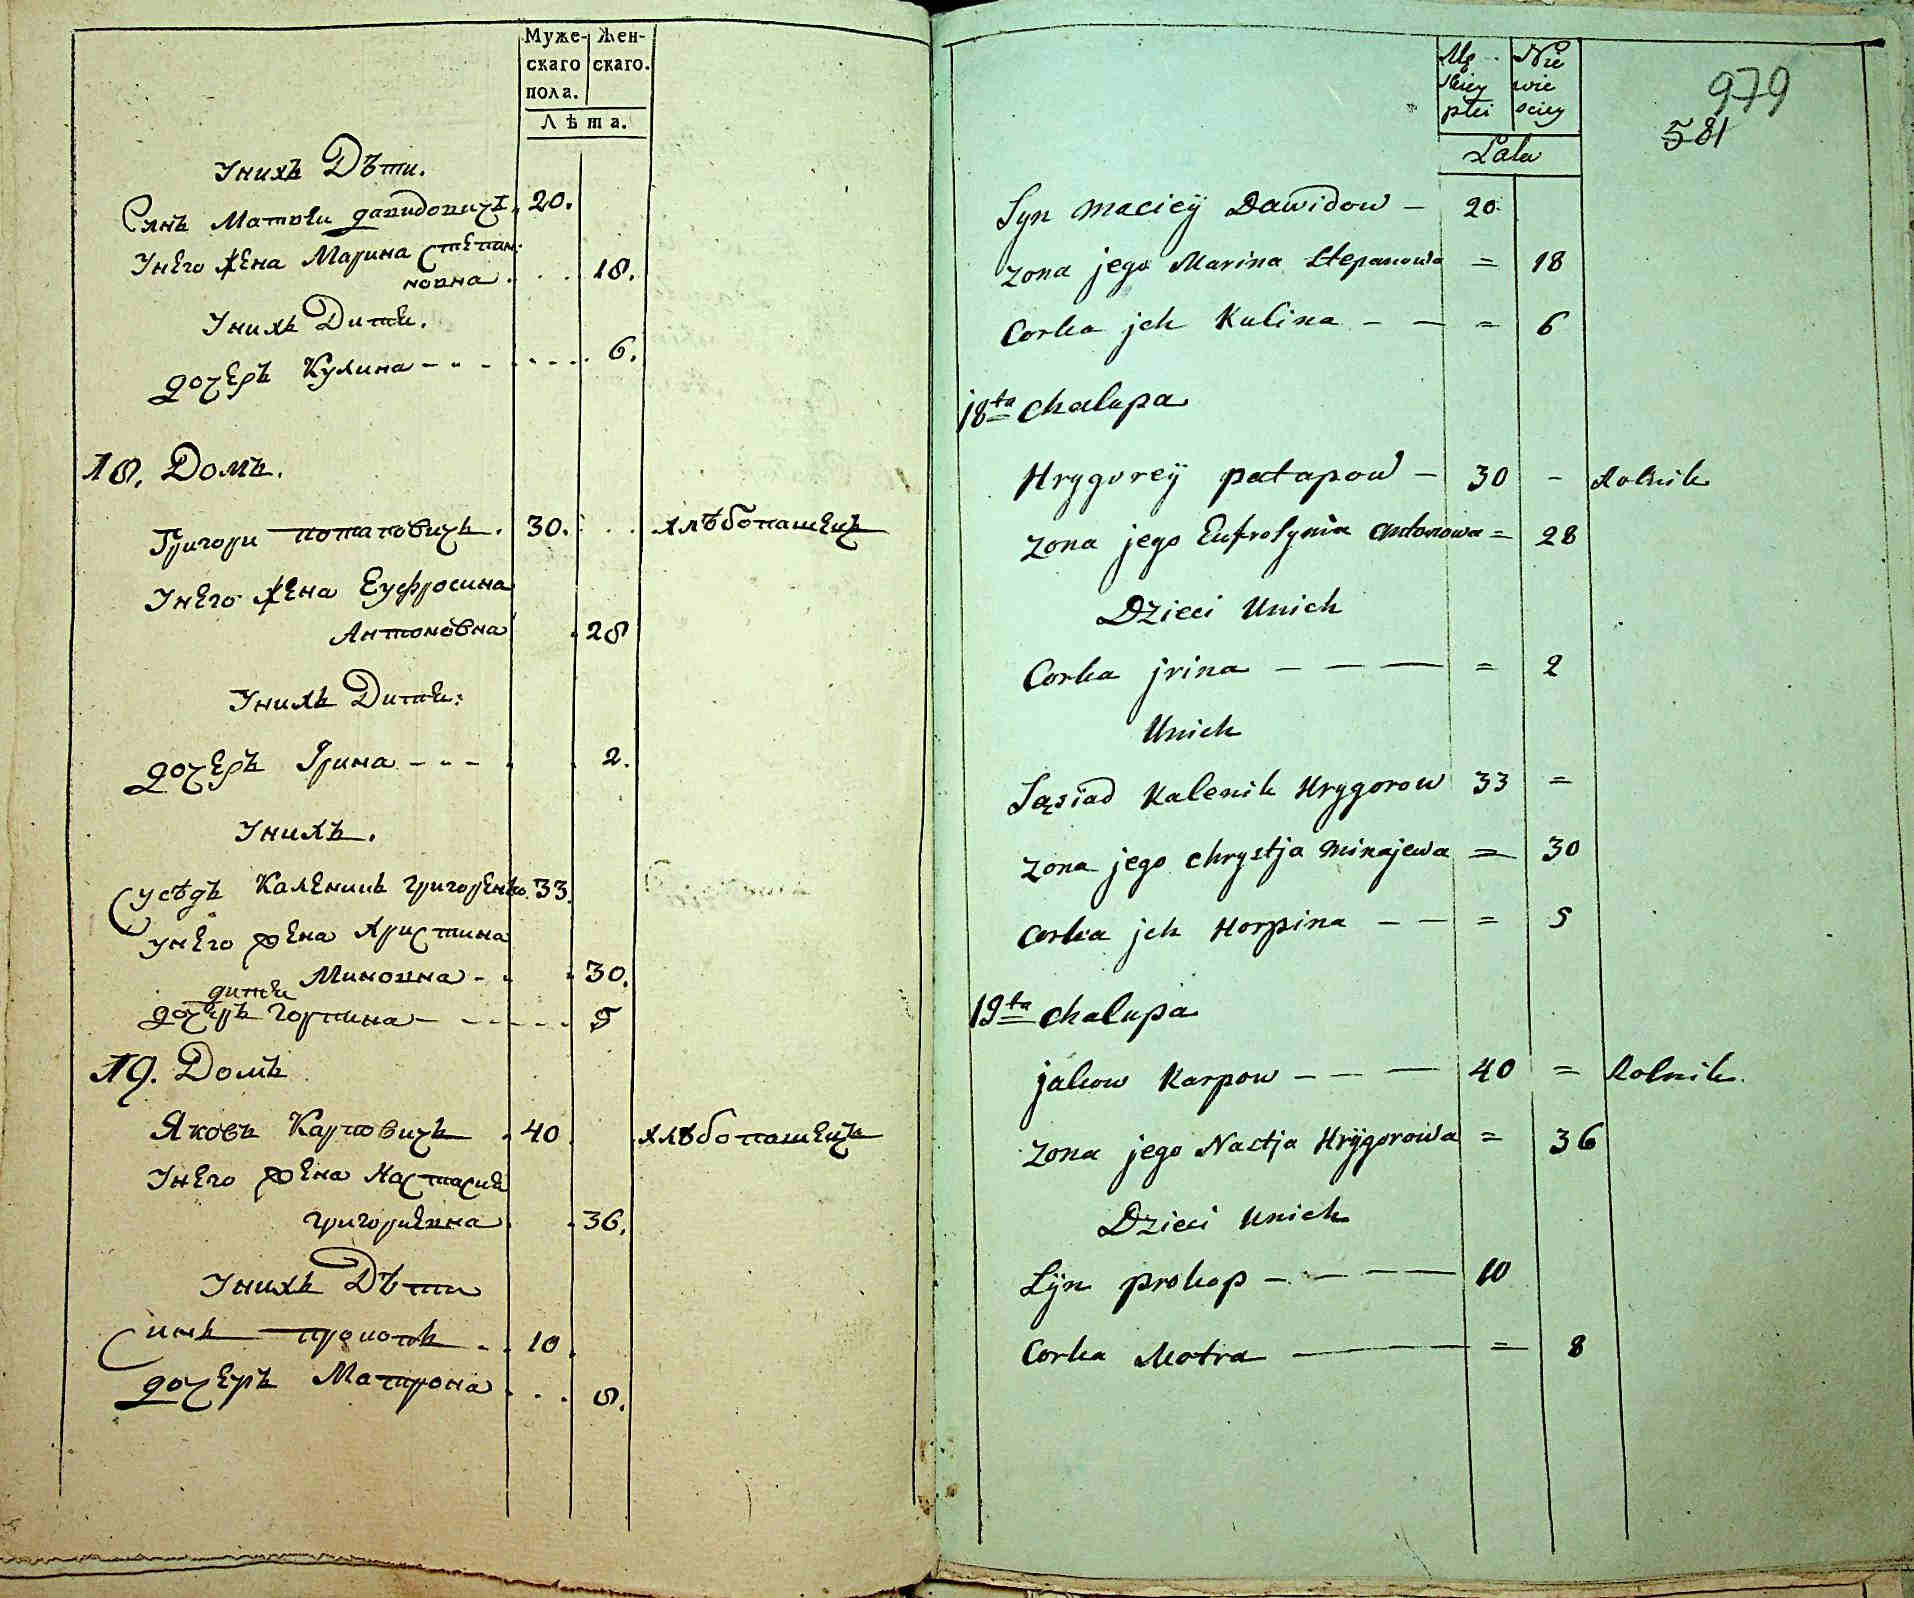 Муже- Жен-
скаго скаго.
пола.
Лѣта.
Унихъ Дѣти.
Синъ Матвѣи давидовичъ. 20.
Унего жена Марина Степан-
новна . . . 18.
Унихъ Дитѣ.
дочеръ Кулина - - - . . . . 6.
18. Домъ.
Григори потаповичъ. 30. . . хлѣбопашецъ
Унего жена Еуфросина
Антоновна 28
Унихъ Дитѣ:
дочеръ Ярина - - - 2.
Унихъ.
Сусѣдъ Каленикъ григоренко. 33.
унего жена христина
Миновна - 30.
дитѣ
дочеръ горпина - - - - - 5
19. Домъ
Яковъ Карповичъ 40 хлѣбопашецъ
Унего жена Настасия
григориевна 36.
Унихъ Дѣти
Синъ прокопъ . 10.
дочеръ Матрона . . . 8.
Mę- Nie
skiey wie
płci sciey
Lata
979
581
Syn maciey Dawidow - 20.
zona jego Marina Stepanowa = 18
Corka jch Kulina - - = 6
18ta chalupa
Hrygorey patapow - 30 - Rolnik
zona jego Eufrosynia Antonowa = 28
Dzieci Unich
Corka jrina - - - = 2
Unich
Sąsiad Kalenik Hrygorow 33 =
zona jego chrystja Minajewa = 30
Corka jch Horpina - - = 5
19ta chalupa
jakow Karpow - - - 40 = Rolnik.
zona jego Nastja Hrygorowa = 36
Dzieci Unich
Syn prokop - - - - 10
Corka Motra - = 8